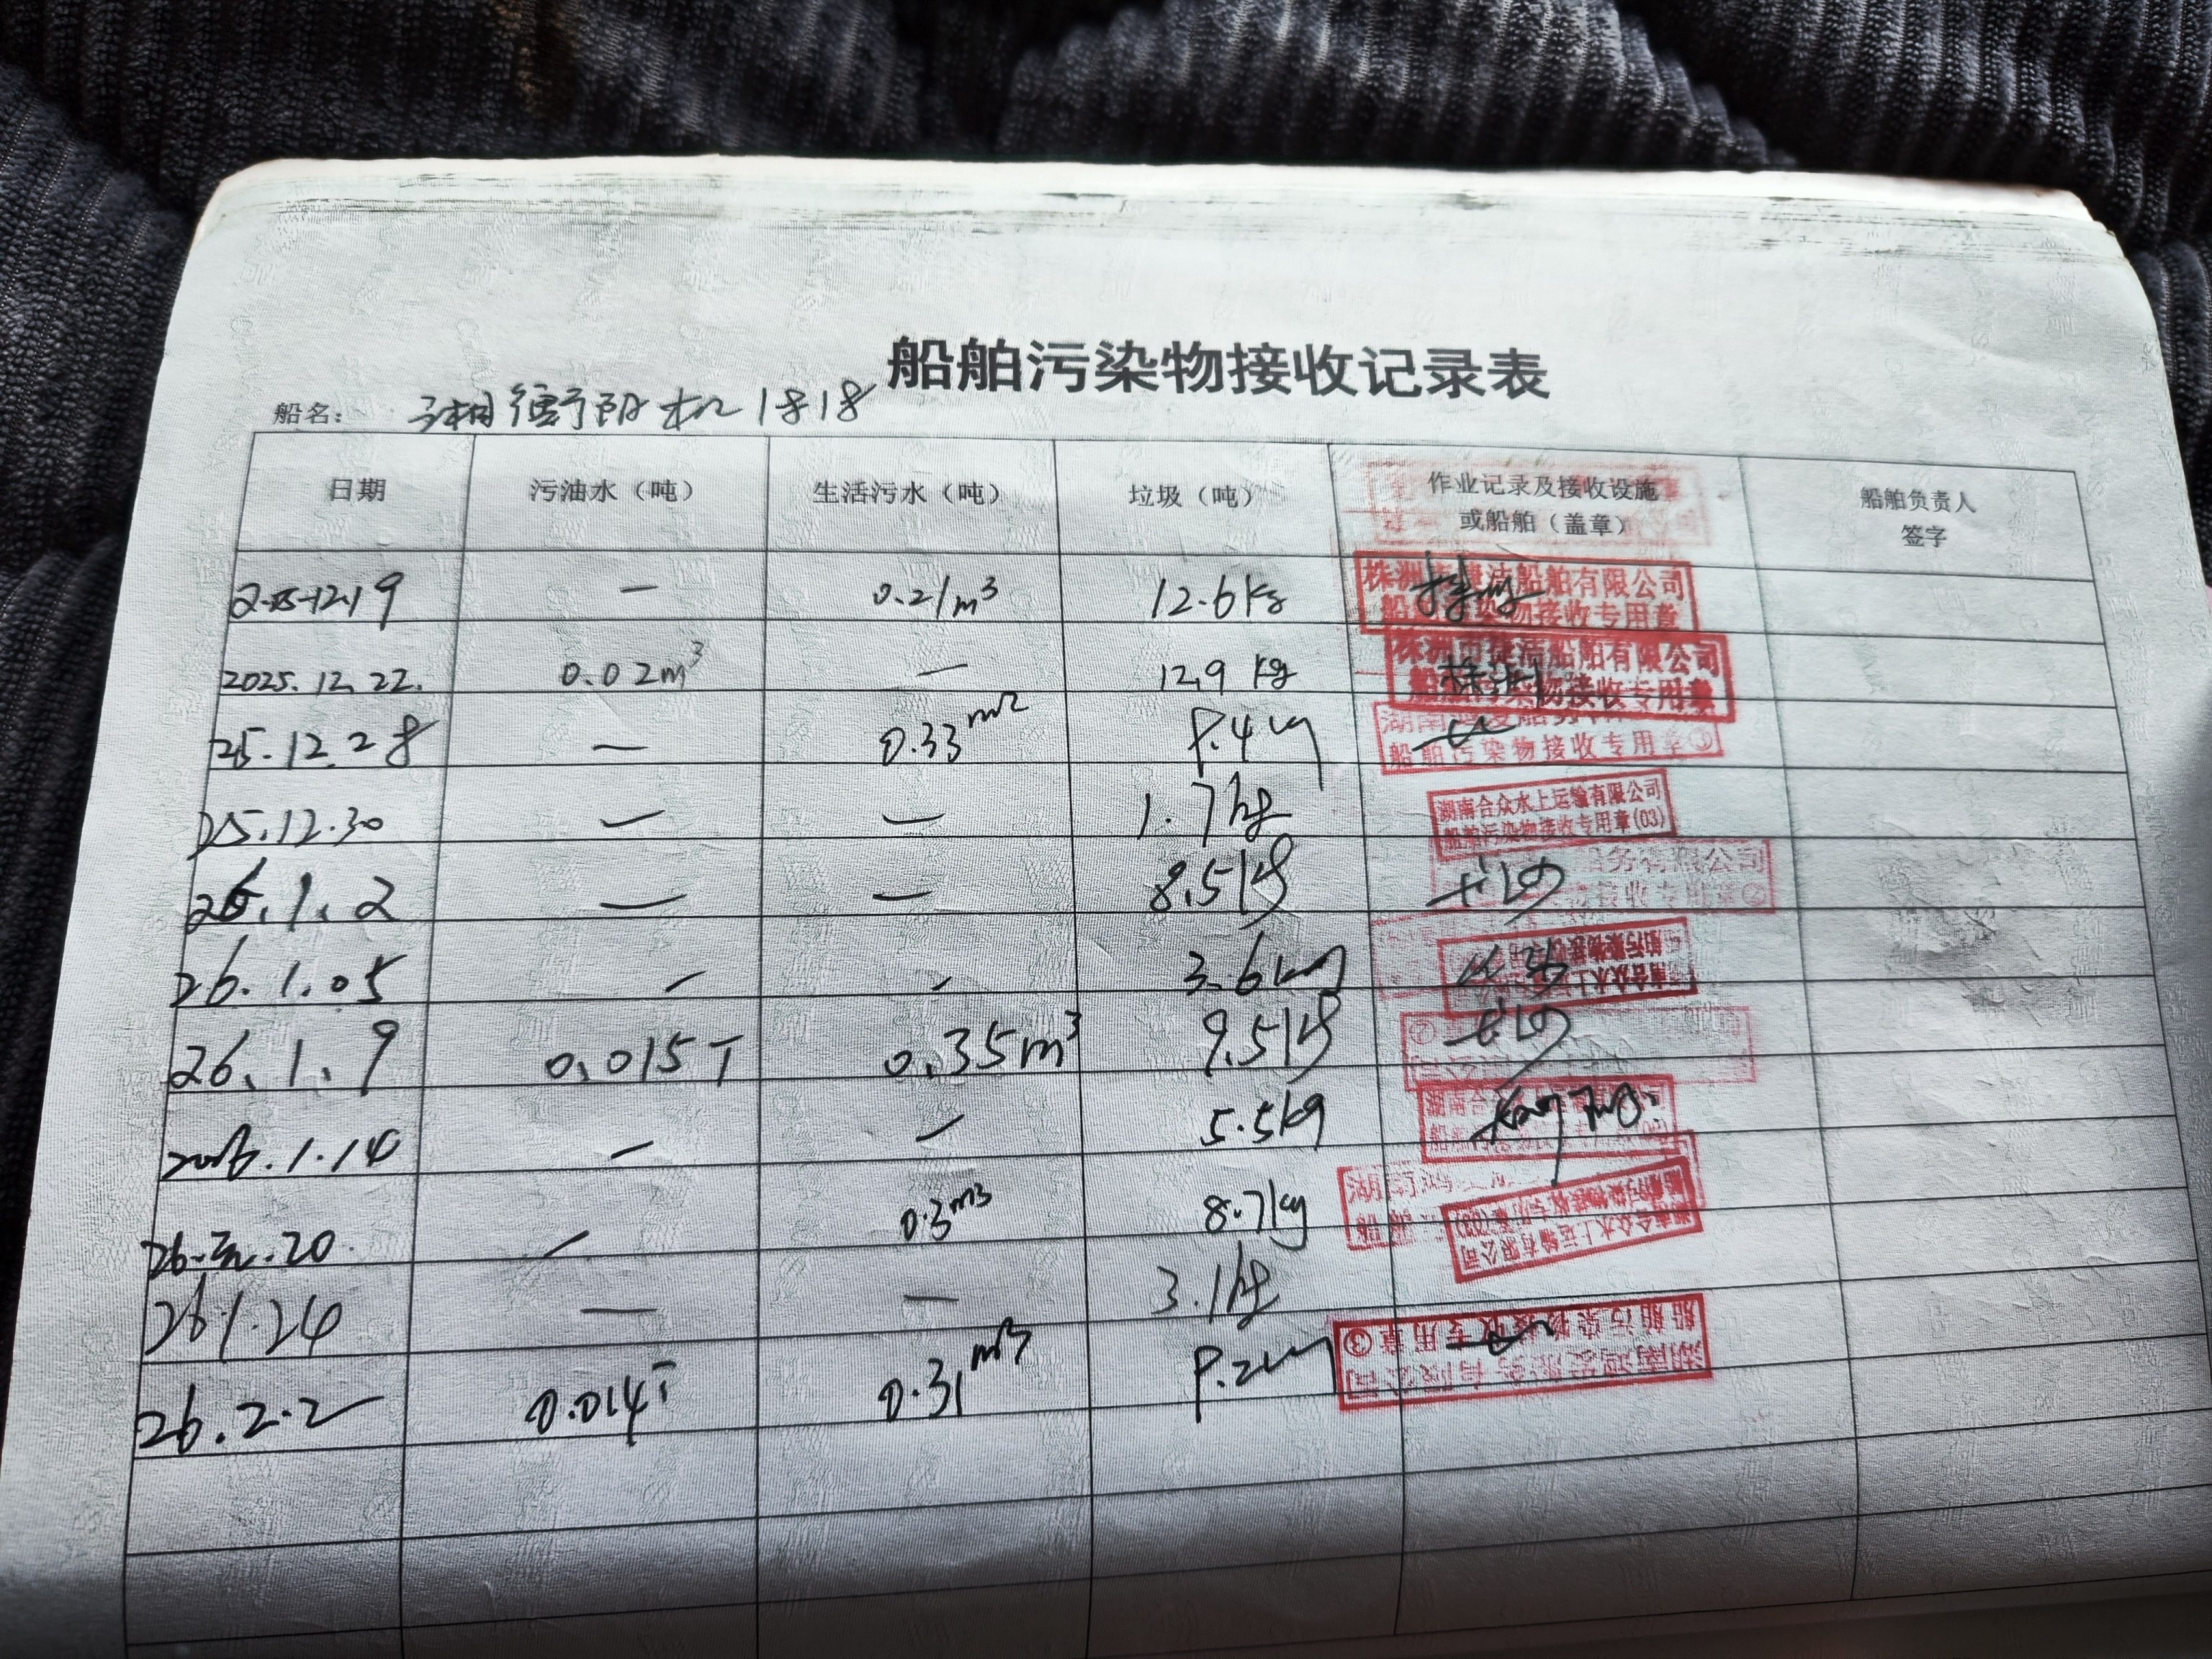 船舶污染物接收记录表
船名： 湘衡阳机1818
日期 污油水（吨） 生活污水（吨） 垃圾（吨） 作业记录及接收设施或船舶（盖章） 船舶负责人签字
2025.12.19 — 0.21m³ 12.6kg 株洲市捷洁船舶有限公司 船舶污染物接收专用章
2025.12.22. 0.02m³ — 12.9kg 株洲市捷洁船舶有限公司 船舶污染物接收专用章 株洲
25.12.28 — 0.33 8.4kg 船舶污染物接收专用章③
25.12.30 — — 1.7kg 湖南合众水上运输有限公司 船舶污染物接收专用章(03)
26.1.2 — — 8.5kg 务有限公司 接收专用章②
26.1.05 — — 3.6kg 南合众水上 舶污染物接收
26.1.9 0.015T 0.35m³ 9.5kg
2026.1.14 — — 5.5kg 湖南合众
26.元.20 — 0.3m3 8.7kg 湖南合众水上运输有限公司 船舶污染物接收专用章(03)
26.1.24 — — 3.1kg
26.2.2 0.014T 0.31m3 8.2kg 湖南鸿发船务有限公司 船舶污染物接收专用章③